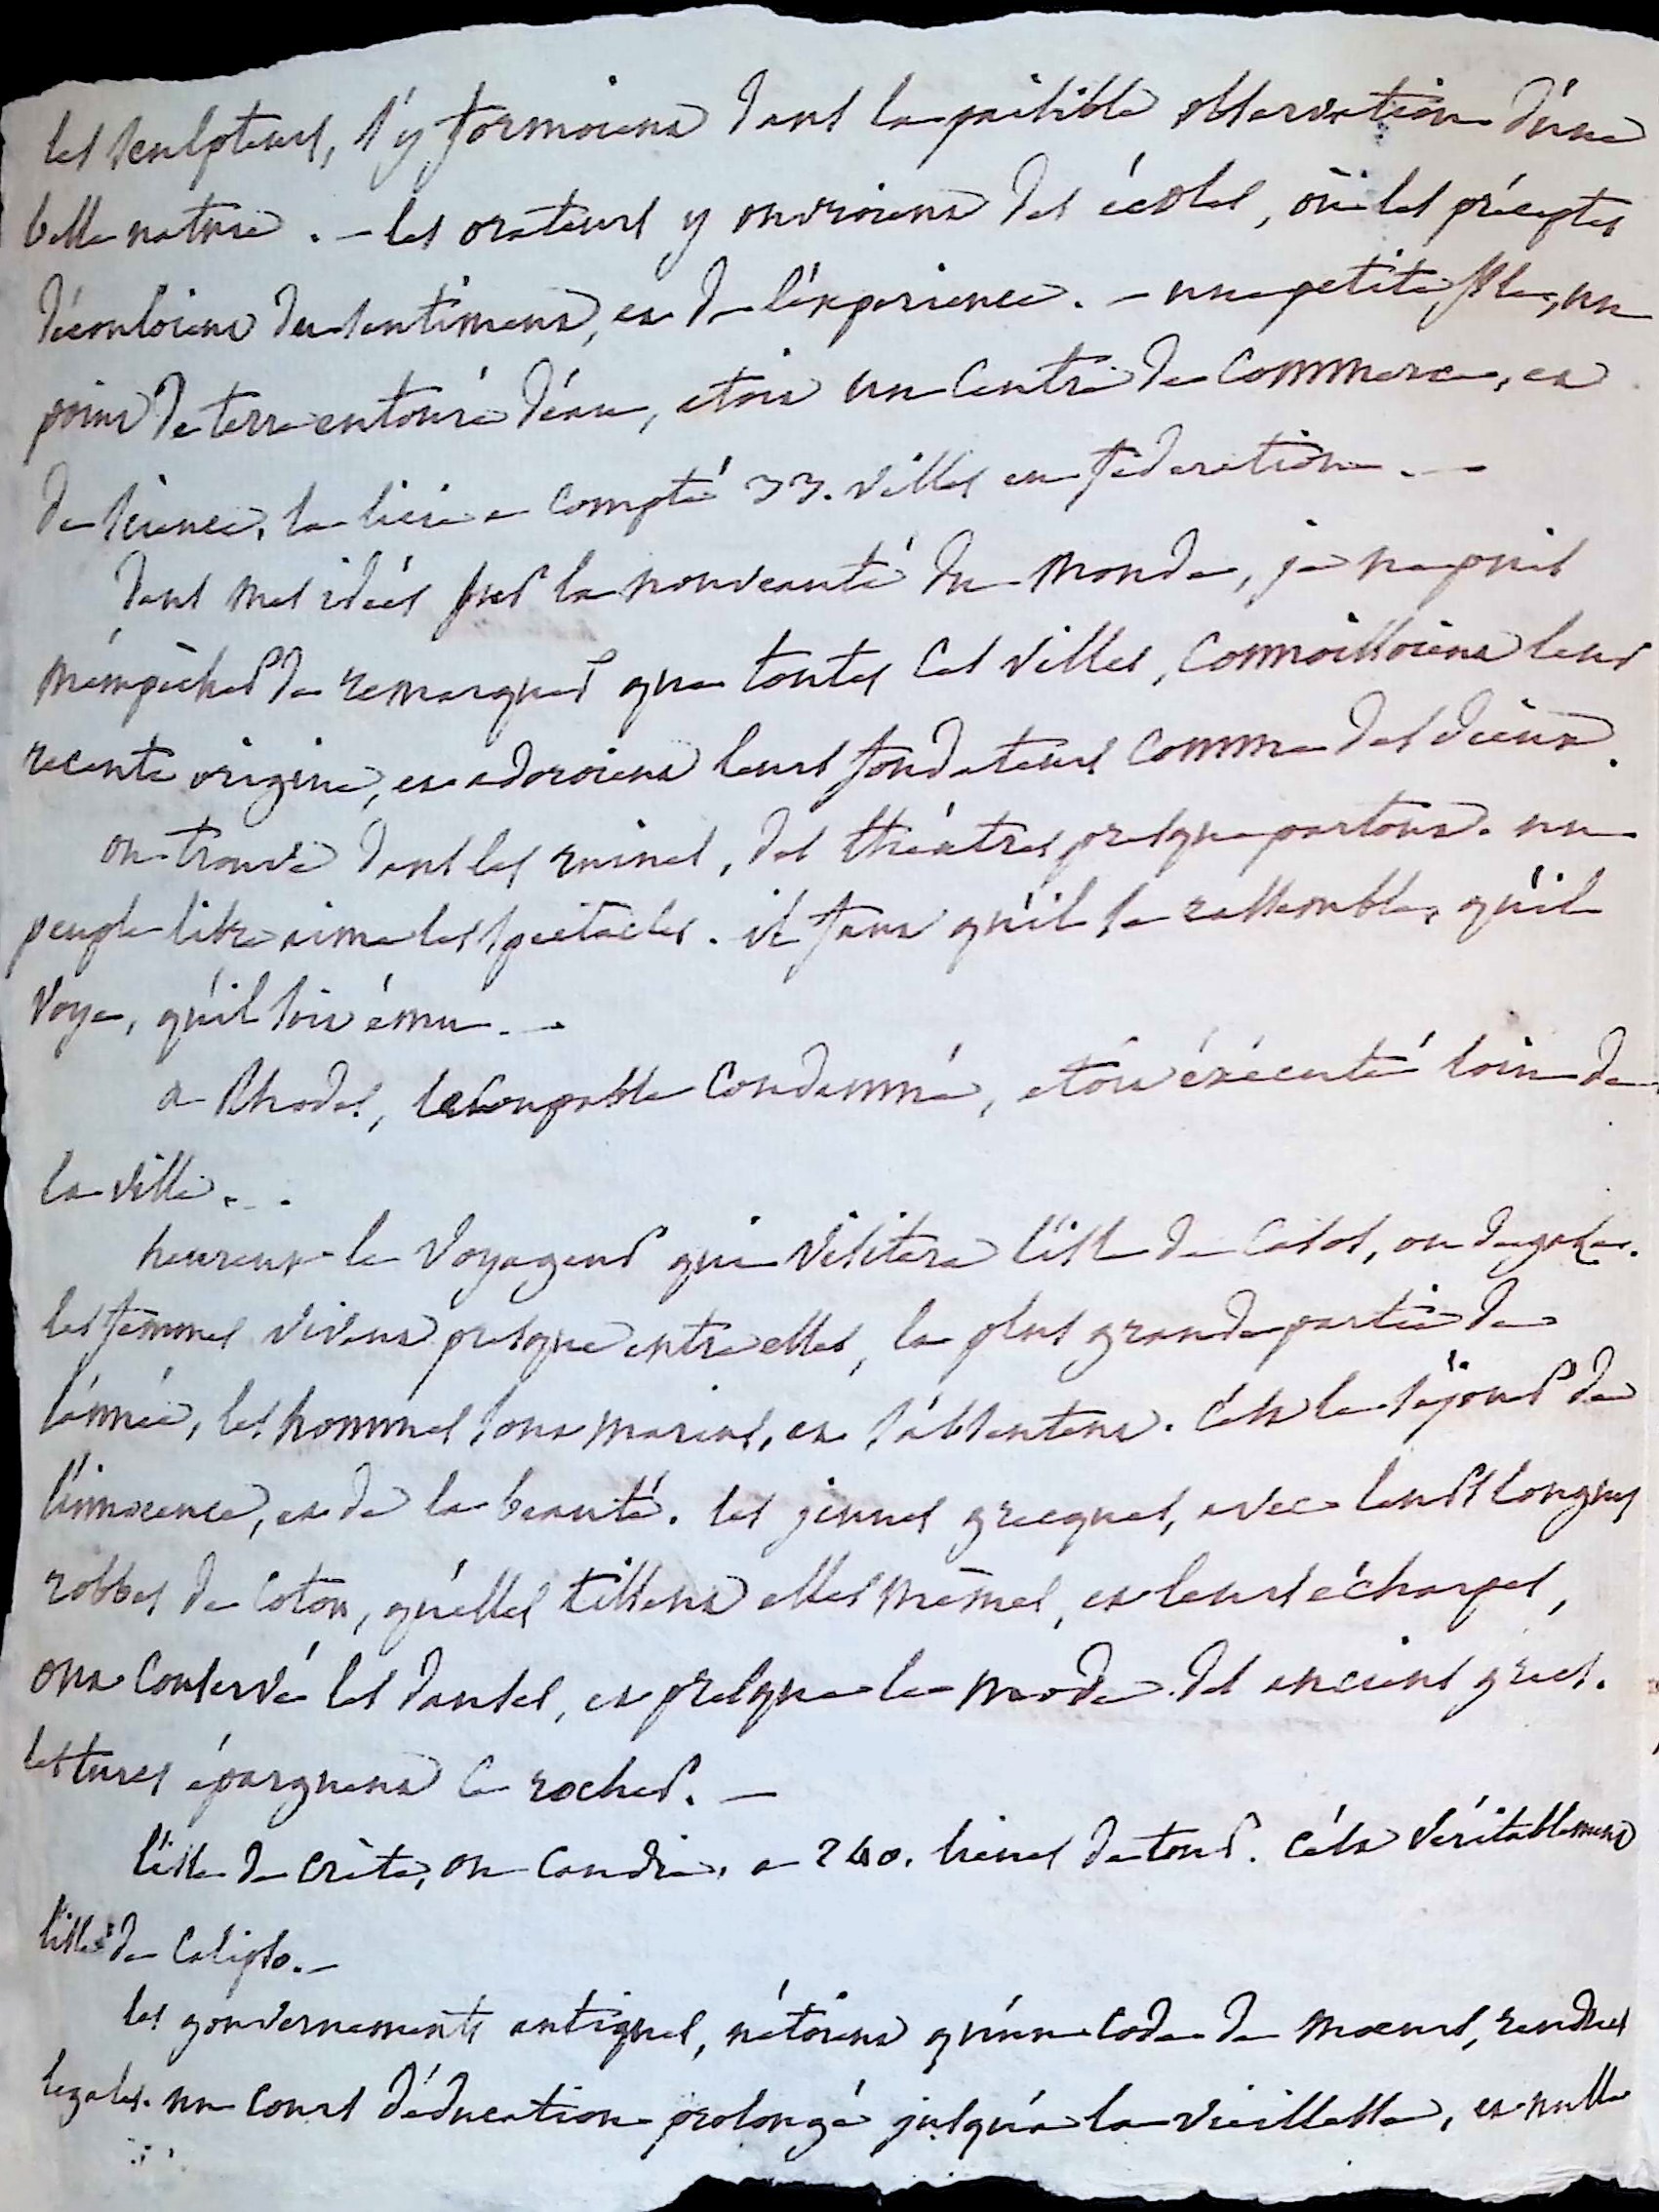 les sculpteurs, s'y formoient dans la paisible observation d'une
belle nature. - les orateurs y ouvroient des écoles, où les préceptes
découloient du sentiment, et de l'expérience. - une petite isle, un
point de terre entouré d'eau, etoit un centre de commerce, et
de science. la licie a compté 33. villes en federation. -
dans mes idées sur la nouveauté du monde, je ne puis
m'empêcher de remarquer que toutes ces villes, connoissoient leur
recente origine, et adoroient leurs fondateurs comme des dieux.
on trouve dans les ruines, des théatres presque partout. un
peuple libre aime les spectacles. il faut qu'il se rassemble, qu'il
voye, qu'il soit ému. -
a Rhodes, le coupable condamné, etoit éxécuté loin de
la ville. -
heureux le voyageur qui visitera l'isle de Casos, ou
les femmes vivent presque entre elles, la plus grande partie de
l'année, les hommes sont marins, et s'absentent. c'est le séjour de
l'innocence, et de la beauté. les jeunes grecques, avec leurs longues
robbes de coton, qu'elles tissent elles mêmes, et leurs écharpes,
ont conservé les danses, et presque la mode des anciens grecs.
les turcs épargnent ce rocher. -
l'isle de crète, ou Candie, a 240. lieues de tour. c'est véritablement
l'isle de Calipso. -
les gouvernements antiques, n'étoient qu'un code de moeurs, rendues
legales. un cours d'éducation prolongé jusqu'à la vieillesse, et nulle